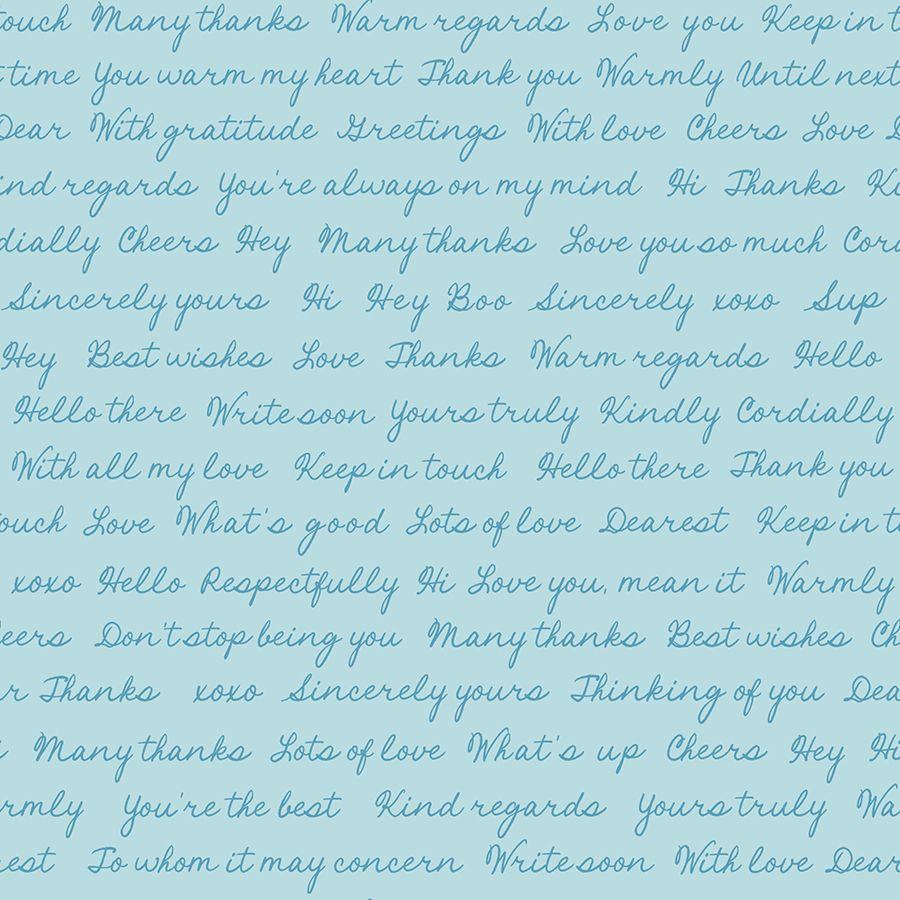 touch Many thanks Warm regards Love you Keep in t
time You warm my heart Thank you Warmly Until next
Dear With gratitude Greetings With love Cheers Love D
ind regards You're always on my mind Hi Thanks Ki
dially Cheers Hey Many thanks Love you so much Cord
Sincerely yours Hi Hey Boo Sincerely xoxo Sup
Hey Best wishes Love Thanks Warm regards Hello
Hello there Write soon Yours truly Kindly Cordially
With all my love Keep in touch Hello there Thank you
touch Love What's good Lots of love Dearest Keep in to
xoxo Hello Respectfully Hi Love you, mean it Warmly
eers Don't stop being you Many thanks Best wishes Ch
r Thanks xoxo Sincerely yours Thinking of you Dea
i Many thanks Lots of love What's up Cheers Hey Hi
rmly You're the best Kind regards Yours truly Wa
rest To whom it may concern Write soon With love Dear